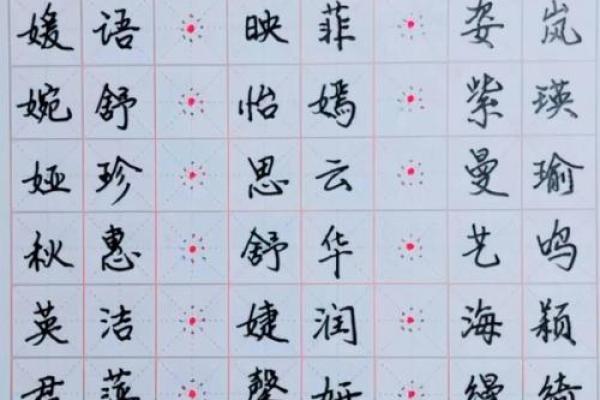 媛语 映菲 姿岚
婉舒 怡嫣 紫瑛
娅珍 思云 曼瑜
秋惠 舒华 艺鸣
英洁 婕润 海颖
君萍 馨妍 缦绮